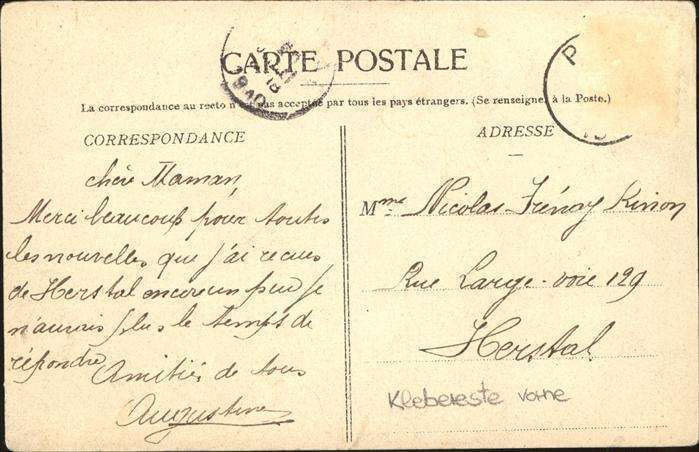 CARTE POSTALE
La correspondance au recto n'est pas acceptée par tous les pays étrangers. (Se renseigner à la Poste.)
CORRESPONDANCE
chère Maman,
Merci beaucoup pour toutes
les nouvelles que j'ai recues
de Herstal encore un peu je
n'aurais plus le temps de
répondre
Amitiés de tous
Augustine
ADRESSE
Mme Nicolas-Frénay Kinon
Rue Large-voie 129
Herstal
Klebereste vorne